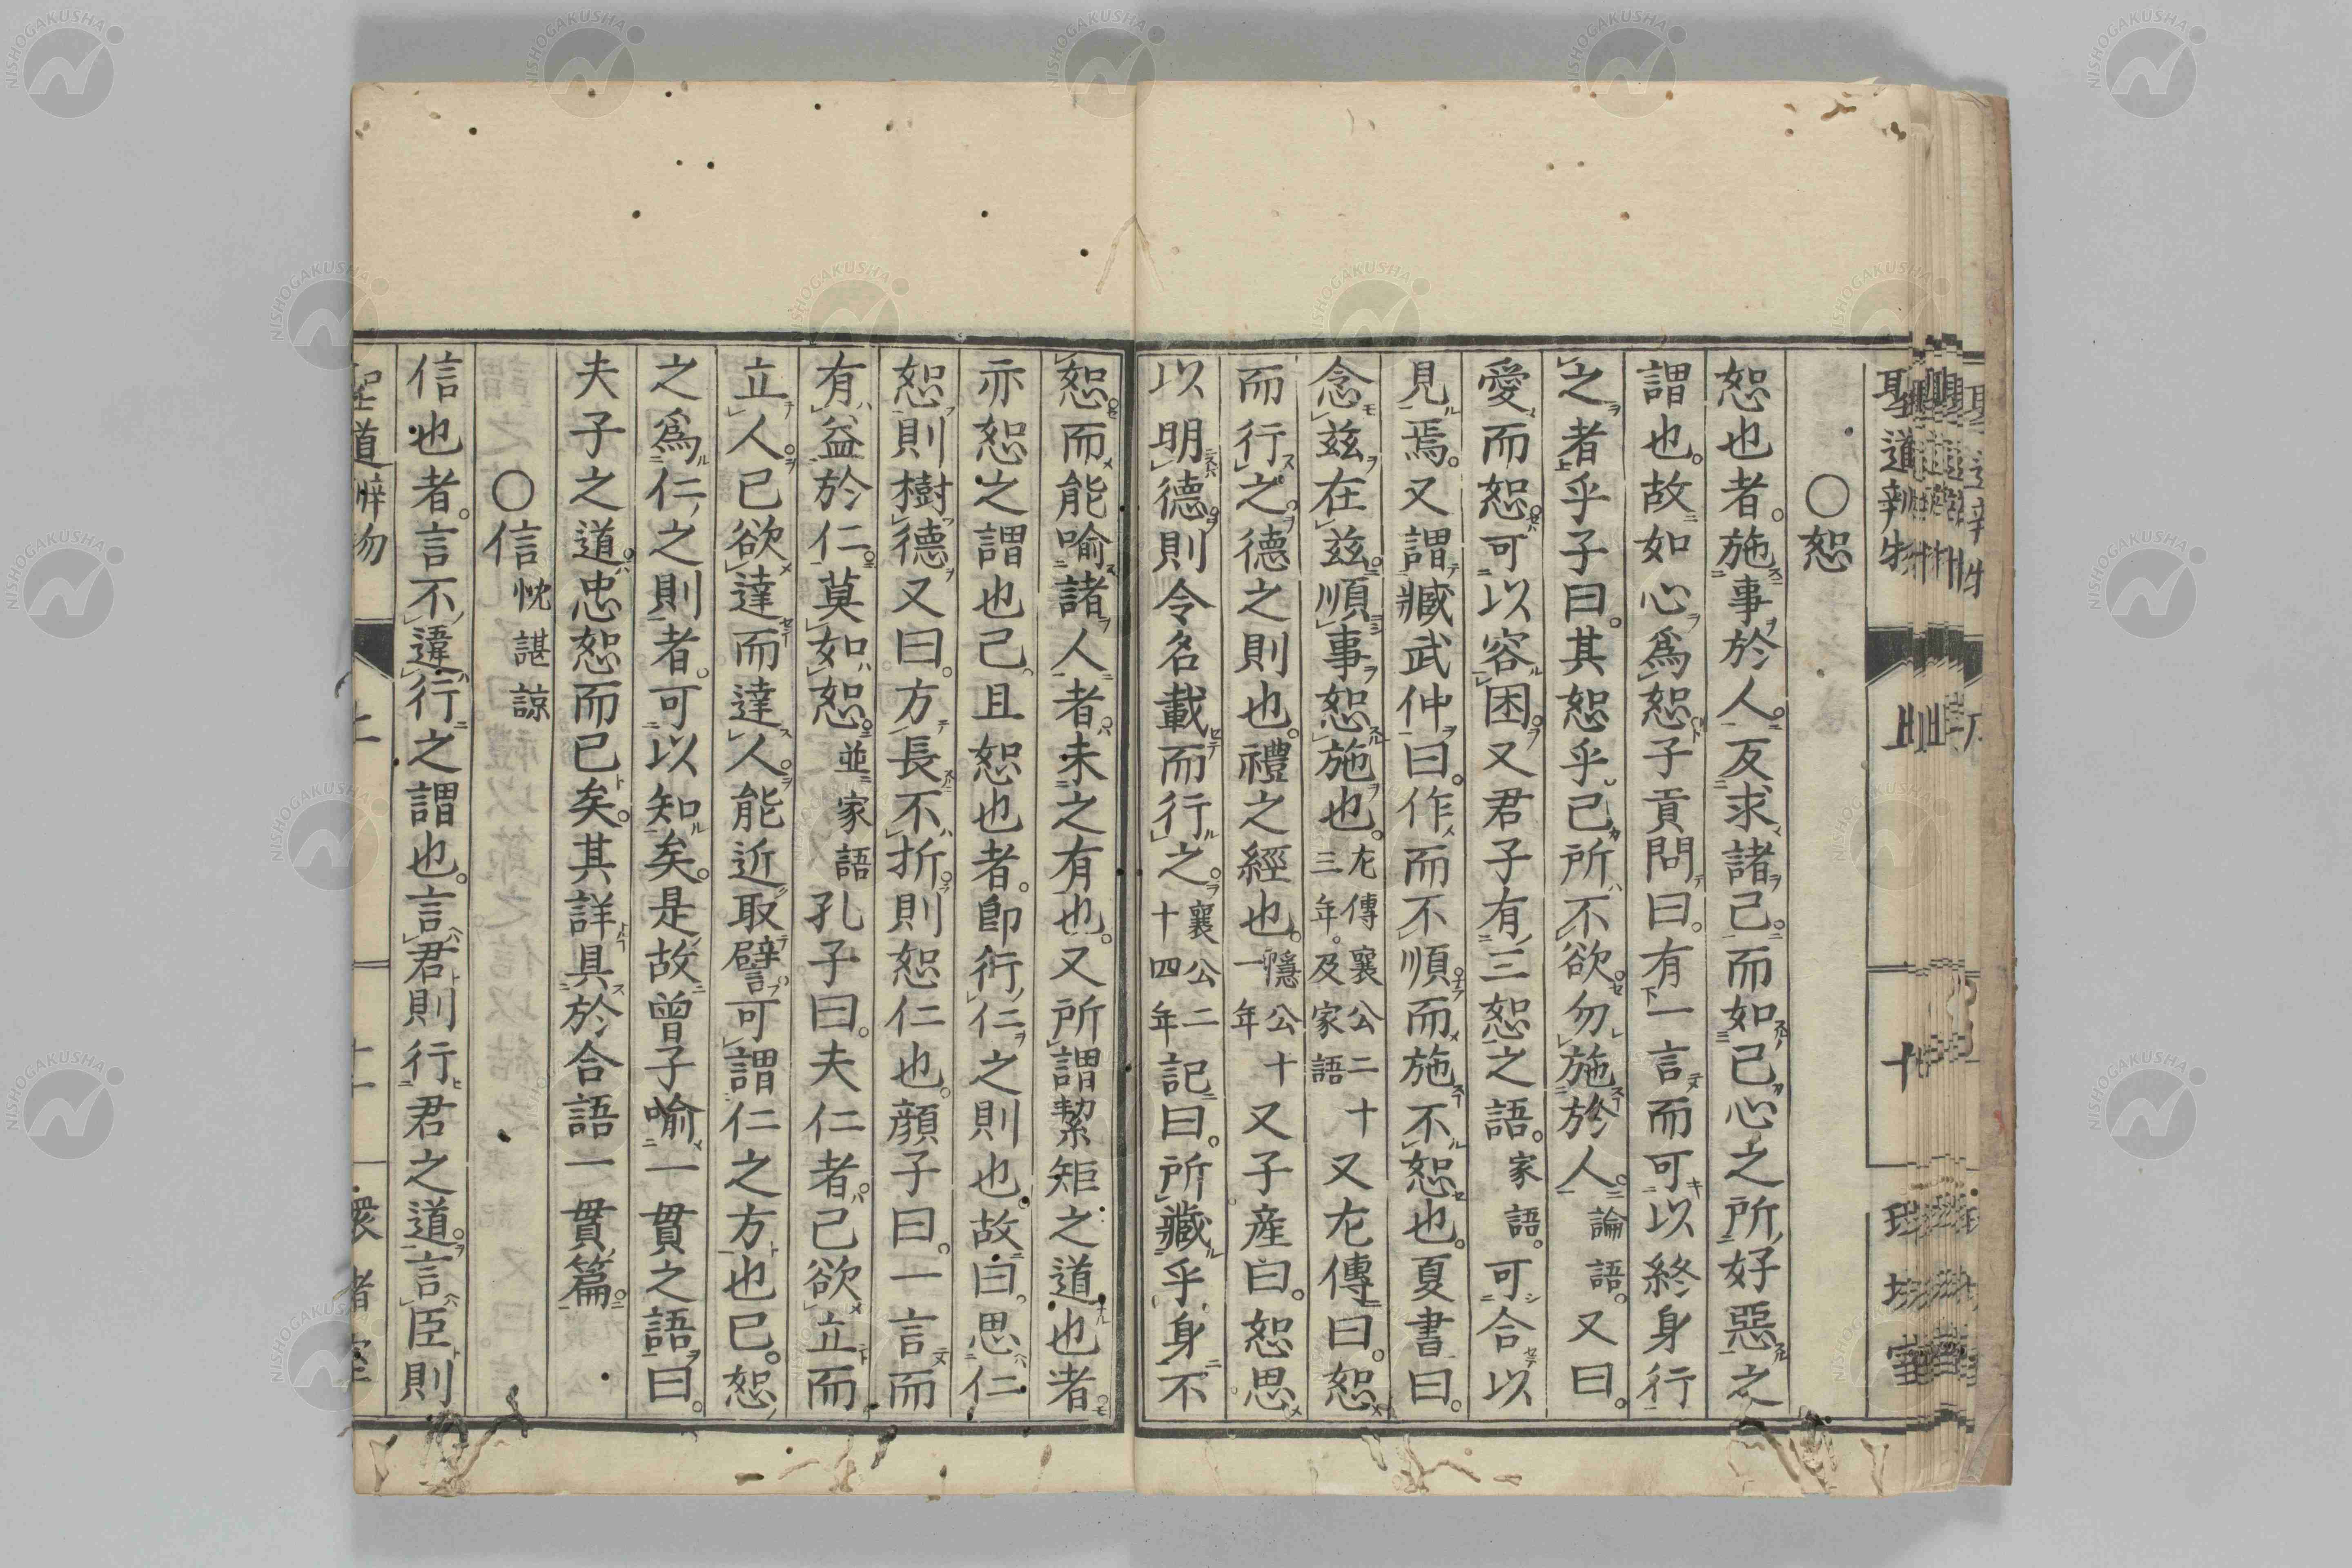 ○恕
恕也者。施事於人。反求諸己。而如己心之所好惡之
謂也。故如心爲恕子貢問曰。有一言而可以終身行
之者乎子曰。其恕乎。己所不欲勿施於人。論語。又曰。
愛而恕可以容困。又君子有三恕之語。家語。可合以
見焉。又謂臧武仲曰。作而不順而施不恕也。夏書曰。
念茲在茲順事恕施也。左傳襄公二十三年。及家語又左傳曰。恕
而行之。德之則也。禮之經也。隱公十一年又子產曰。恕思
以明德則令名載而行之。襄公二十四年記曰。所藏乎身不
恕而能喻諸人者。未之有也。又所謂絜矩之道也者。
亦恕之謂也已。且恕也者。卽行仁之則也。故曰。思仁
恕則樹德又曰。方長不折則恕仁也。顏子曰。一言而
有益於仁莫如恕。並家語孔子曰。夫仁者。己欲立而
立人。己欲達而達人。能近取譬可謂仁之方也已。恕
之爲仁之則者。可以知矣。是故曾子喻一貫之語曰。
夫子之道。忠恕而已矣。其詳具於合語一貫篇。
○信 忱 諶 諒
信也者。言不違行之謂也。言君則行君之道。言臣則